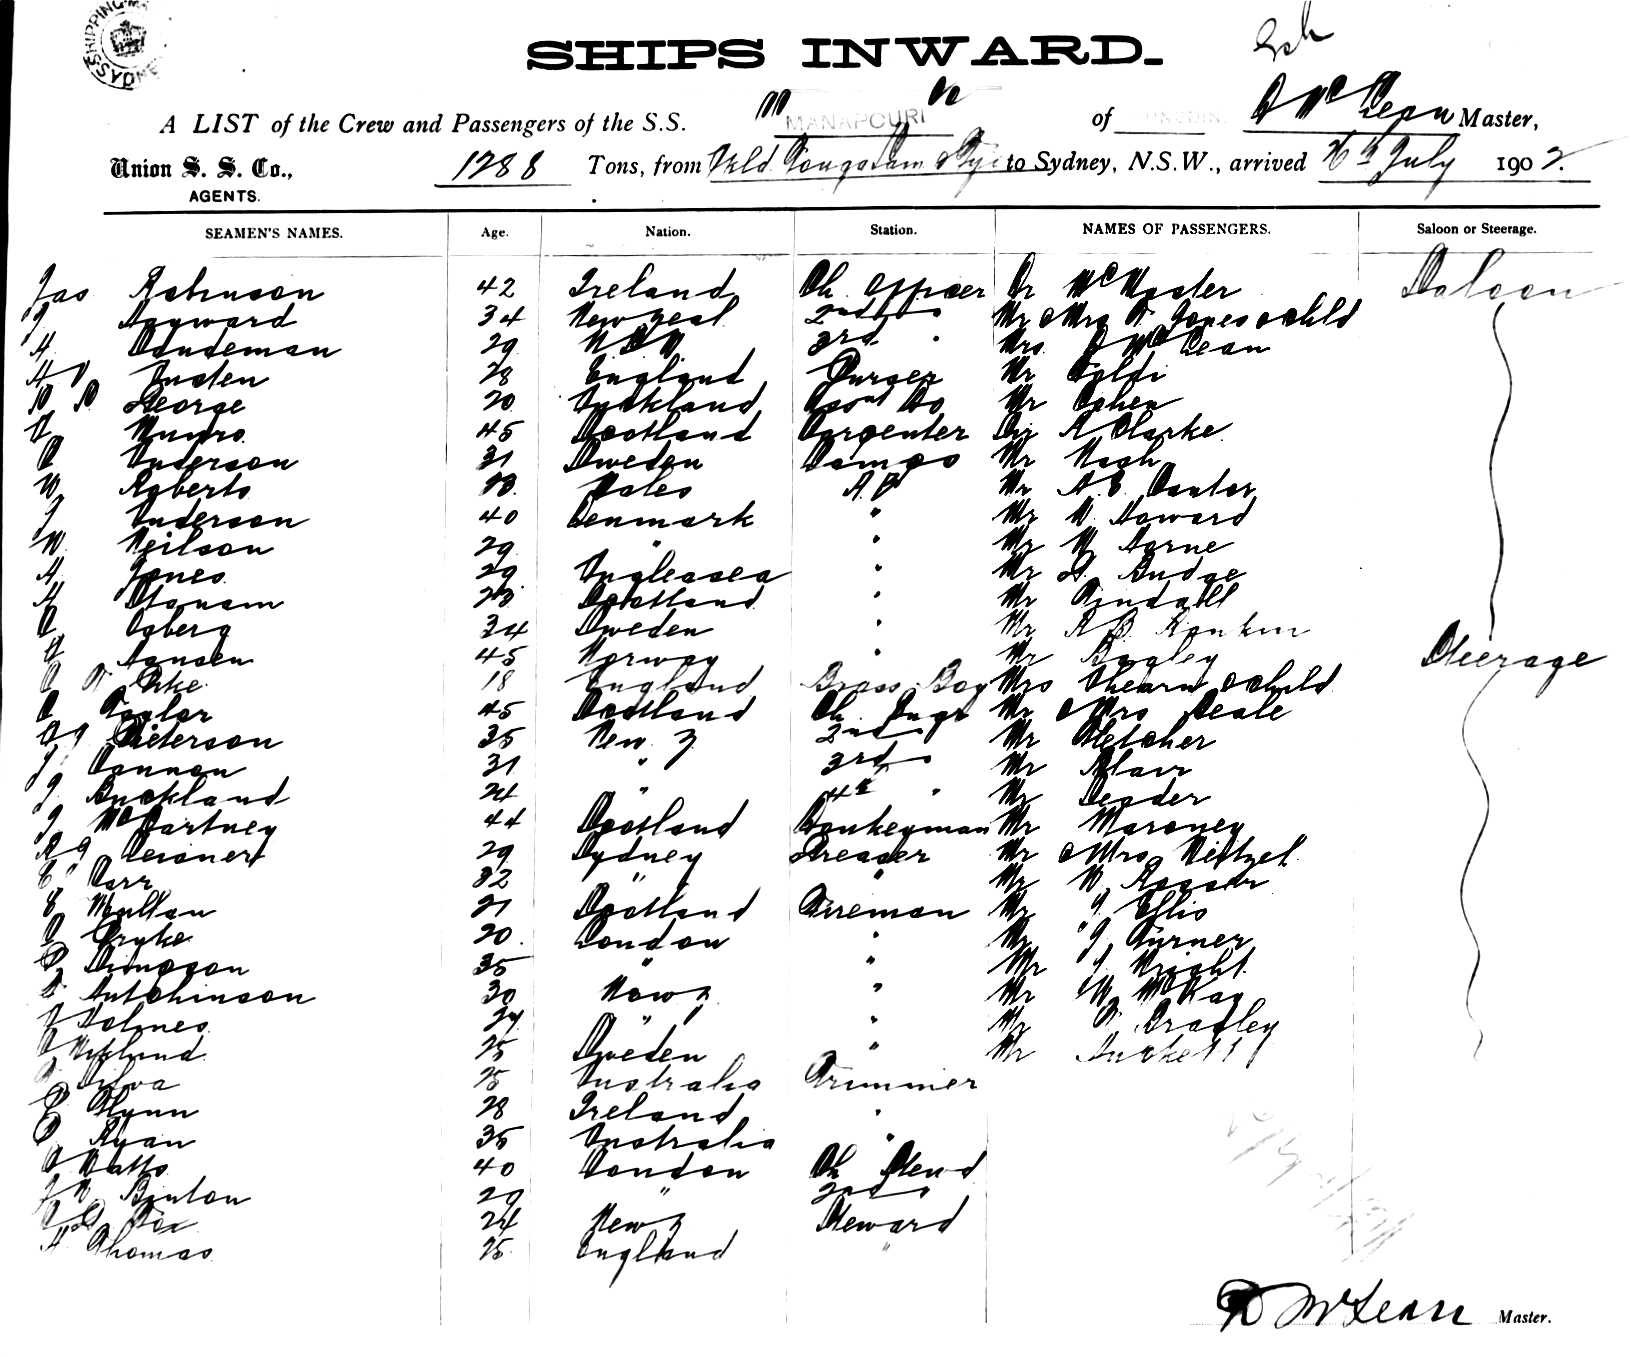 SHIPPING MA
SYDNEY
SHIPS INWARD.
A LIST of the Crew and Passengers of the S.S. MANAPOURI of D McLean Master,
Union S. S. Co., 1288 Tons, from Auckld Tonga Sam & Fiji to Sydney, N.S.W., arrived July 1902.
AGENTS.
SEAMEN'S NAMES. Age. Nation. Station. NAMES OF PASSENGERS. Saloon or Steerage.
Jas Robinson 42 Ireland Ch. Officer Dr McMaster Saloon
Hayward 34 New Zeal 2nd " Mr & Mrs Jones & child
H. Sandeman 29 N S W 3rd " Mrs D McLean
Austen 28 England Purser Mr
George 20 Auckland Asst Do Mr Cohen
Munro 45 Scotland Carpenter R Clarke
Anderson 31 Sweden Lamps Mr Nash
W Roberts Wales A.B Mr A.E. Cantor
J Anderson 40 Denmark " Mr W. Howard
W. Neilson 29 " " Mr W Horne
H Jones 29 Anglesea " Mr G. Budge
H 23 Scotland " Mr Tindall
Osberg 34 Sweden " Mr R B. Rankin
Hansen 45 Norway " Mr Bagley Steerage
Pike 18 England Brass Boy Mrs Ahearn & child
Taylor 45 Scotland Ch. Engr Mr & Mrs Leale
Peterson 35 New Z 2nd " Mr Fletcher
J. Cannon 31 " 3rd " Mr Blair
J. Buckland 24 " 4th " Mr Leader
J McCartney 44 Scotland Donkeyman Mr Maroney
29 Sydney Greaser Mr & Mrs Neitzel
Carr 32 " " Mr W
Mullan 21 Scotland Fireman Mr J Ellis
Pryke 20 London " Mr J Turner
Simpson 35 " " Mr J Wright
Hutchinson 30 New Z " Mr W McKay
J Holmes " " Mr Bradley
25 Sweden " Mr Huckett
Silva 25 Australia Trimmer
Flynn 28 Ireland "
Ryan 35 Australia "
Watts 40 London Ch Stewd
J W Brinton 29 " 2nd "
24 New Z Steward
H Thomas 25 England "
D McLean Master.